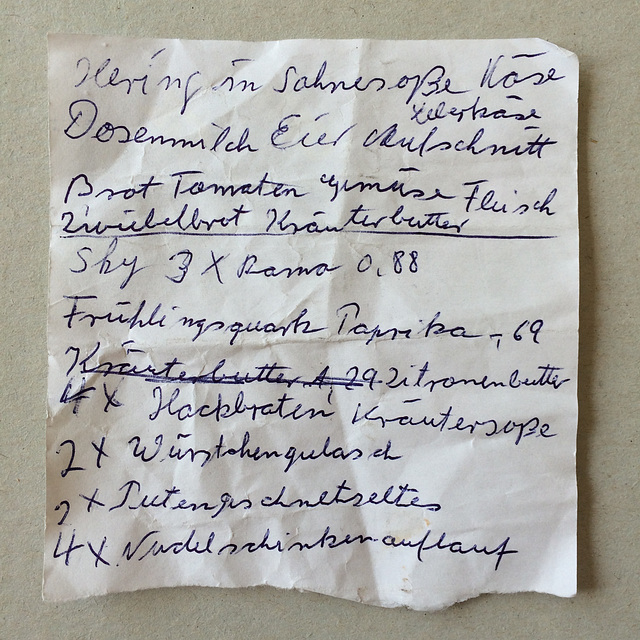 Hering in Sahnesoße Käse
Dosenmilch Eier Aufschnitt
Brot Tomaten Gemüse Fleisch
Zwiebelbrot Kräuterbutter
Sky 3 X Rama 0,88
Frühlingsquark Paprika -,69
Kräuterbutter 1,29 Zitronenbutter
4 X Hackbraten Kräutersoße
2 X Würstchengulasch
2 X Putengeschnetzeltes
4 X Nudelschinkenauflauf